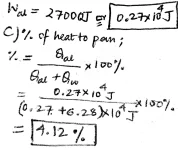 Wal = 2700J or 0.27x10⁴J
C) % of heat to pan;
% = θal / θal + θw x100%
= 0.27x10⁴J / (0.27 + 6.28)x10⁴J x100%
= 4.12%